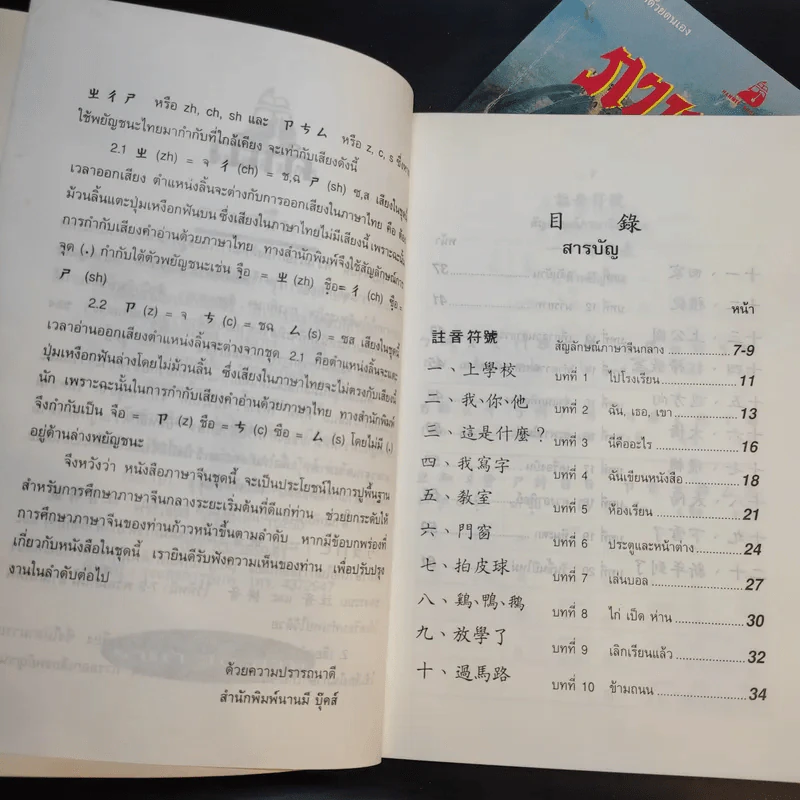 ㄓㄔㄕ หรือ zh, ch, sh และ ㄗㄘㄙ หรือ z, c, s ซึ่ง
ใช้พยัญชนะไทยมากำกับที่ใกล้เคียง จะเท่ากับเสียงดังนี้
2.1 ㄓ (zh) = จ ㄔ (ch) = ช,ฉ ㄕ (sh) ซ,ส เสียงในชุดนี้
เวลาออกเสียง ตำแหน่งลิ้นจะต่างกับการออกเสียงในภาษาไทย คือ ต้อง
ม้วนลิ้นแตะปุ่มเหงือกฟันบน ซึ่งเสียงในภาษาไทยไม่มีเสียงนี้ เพราะฉะนั้น
การกำกับเสียงคำอ่านด้วยภาษาไทย ทางสำนักพิมพ์จึงใช้สัญลักษณ์การ
จุด (.) กำกับใต้ตัวพยัญชนะเช่น จฺือ = ㄓ (zh) ชฺือ = ㄔ (ch) ซฺือ =
ㄕ (sh)
2.2 ㄗ (z) = จ ㄘ (c) = ชฉ ㄙ (s) = ซส เสียงในชุดนี้
เวลาอ่านออกเสียงตำแหน่งลิ้นจะต่างจากชุด 2.1 คือตำแหน่งลิ้นจะแตะ
ปุ่มเหงือกฟันล่างโดยไม่ม้วนลิ้น ซึ่งเสียงในภาษาไทยจะไม่ตรงกับเสียงนี้
นัก เพราะฉะนั้นในการกำกับเสียงคำอ่านด้วยภาษาไทย ทางสำนักพิมพ์
จึงกำกับเป็น จือ = ㄗ (z) ชือ = ㄘ (c) ซือ = ㄙ (s) โดยไม่มี (.)
อยู่ด้านล่างพยัญชนะ
จึงหวังว่า หนังสือภาษาจีนชุดนี้ จะเป็นประโยชน์ในการปูพื้นฐาน
สำหรับการศึกษาภาษาจีนกลางระยะเริ่มต้นที่ดีแก่ท่าน ช่วยยกระดับให้
การศึกษาภาษาจีนของท่านก้าวหน้าขึ้นตามลำดับ หากมีข้อบกพร่องที่
เกี่ยวกับหนังสือในชุดนี้ เรายินดีรับฟังความเห็นของท่าน เพื่อปรับปรุง
งานในลำดับต่อไป
ด้วยความปรารถนาดี
สำนักพิมพ์นานมี บุ๊คส์
ด้วยตนเอง
目 錄
สารบัญ
หน้า
註音符號 สัญลักษณ์ภาษาจีนกลาง 7-9
一、上學校 บทที่ 1 ไปโรงเรียน 11
二、我、你、他 บทที่ 2 ฉัน, เธอ, เขา 13
三、這是什麼? บทที่ 3 นี่คืออะไร 16
四、我寫字 บทที่ 4 ฉันเขียนหนังสือ 18
五、教室 บทที่ 5 ห้องเรียน 21
六、門窗 บทที่ 6 ประตูและหน้าต่าง 24
七、拍皮球 บทที่ 7 เล่นบอล 27
八、鷄、鴨、鵝 บทที่ 8 ไก่ เป็ด ห่าน 30
九、放學了 บทที่ 9 เลิกเรียนแล้ว 32
十、過馬路 บทที่ 10 ข้ามถนน 34